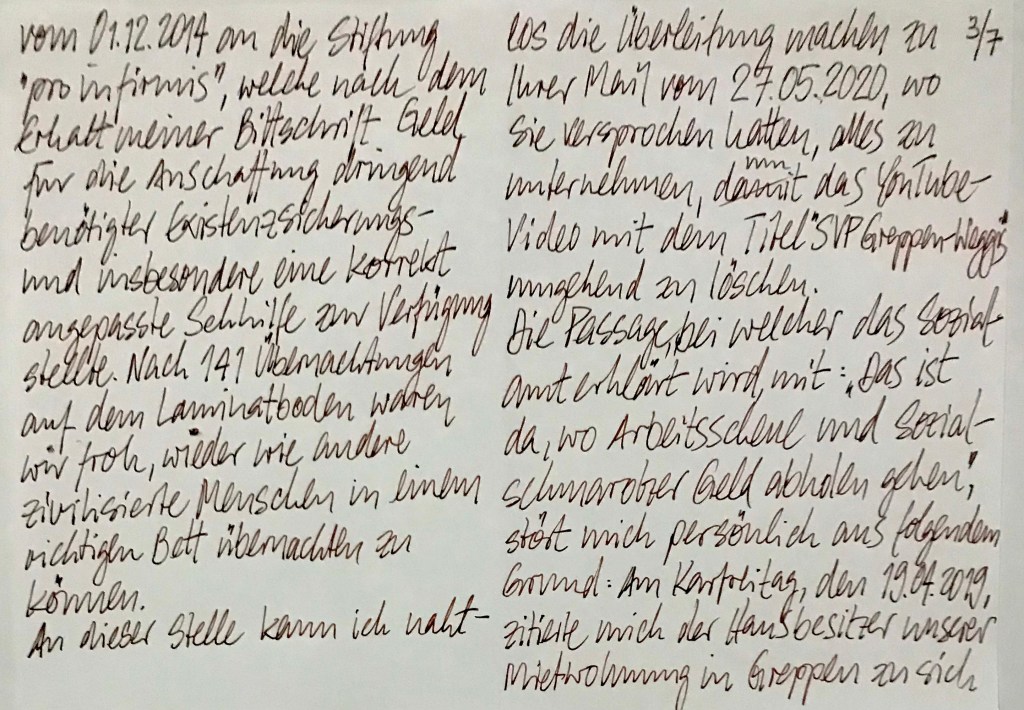 vom 01.12.2014 an die Stiftung
"pro infirmis", welche nach dem
Erhalt meiner Bittschrift Geld
für die Anschaffung dringend
benötigter Existenzsicherungs-
und insbesondere eine korrekt
angepasste Sehhilfe zur Verfügung
stellte. Nach 141 Übernachtungen
auf dem Laminatboden waren
wir froh, wieder wie andere
zivilisierte Menschen in einem
richtigen Bett übernachten zu
können.
An dieser Stelle kann ich naht-
3/7
los die Überleitung machen zu
Ihrer Mail vom 27.05.2020, wo
Sie versprochen hatten, alles zu
unternehmen, damit das YouTube-
Video mit dem Titel "SVP Greppen-Weggis"
umgehend zu löschen.
Die Passage, bei welcher das Sozial-
amt erklärt wird, mit: "Das ist
da, wo Arbeitsscheue und Sozial-
schmarotzer Geld abholen gehen",
stört mich persönlich aus folgendem
Grund: Am Karfreitag, den 19.04.2019,
zitierte mich der Hausbesitzer unserer
Mietwohnung in Greppen zu sich